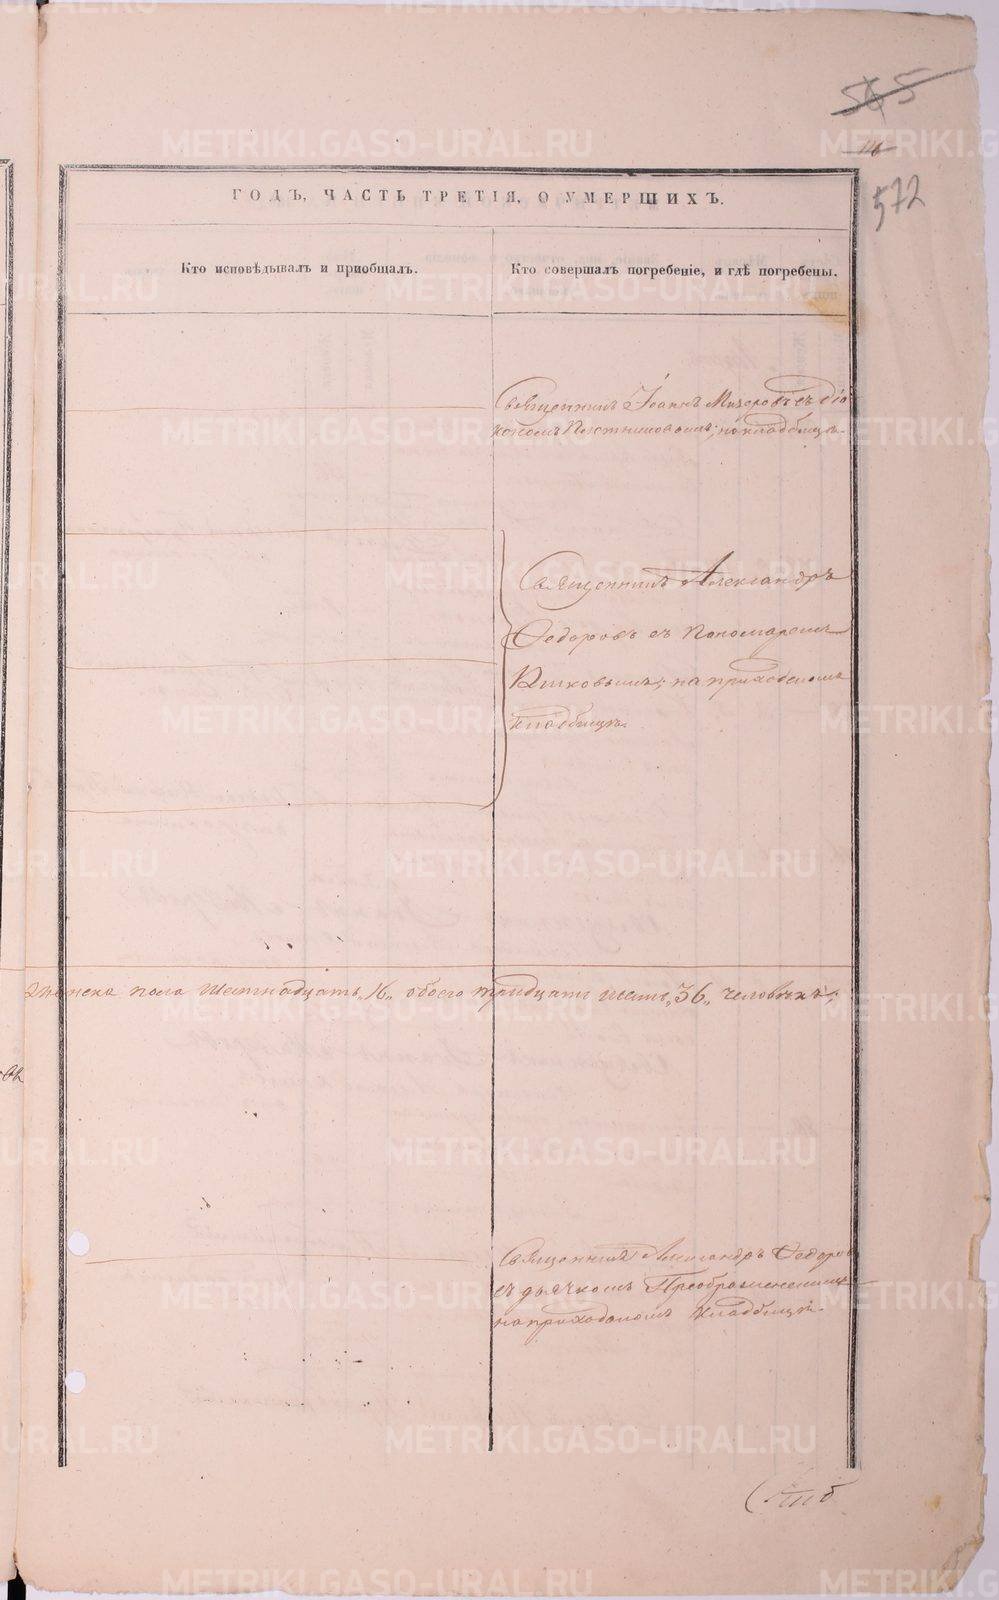 565
116
572
ГОДЪ, ЧАСТЬ ТРЕТІЯ, О УМЕРШИХЪ.
Кто исповѣдывалъ и пріобщалъ.
Кто совершалъ погребеніе, и гдѣ погребены.
Священникъ Іоаннъ Мизеровъ съ діа
кономъ Плотниковымъ; на кладбищѣ.
Священникъ Александръ
Федоровъ съ Пономаремъ
на приходскомъ
кладбищѣ.
женска пола Шестнадцать „16„ обоего тридцать шесть „36„ человѣкъ;
Священникъ Александръ Федоровъ
съ дьячкомъ Преображенскимъ
на приходскомъ кладбищѣ.
METRIKI.GASO-URAL.RU